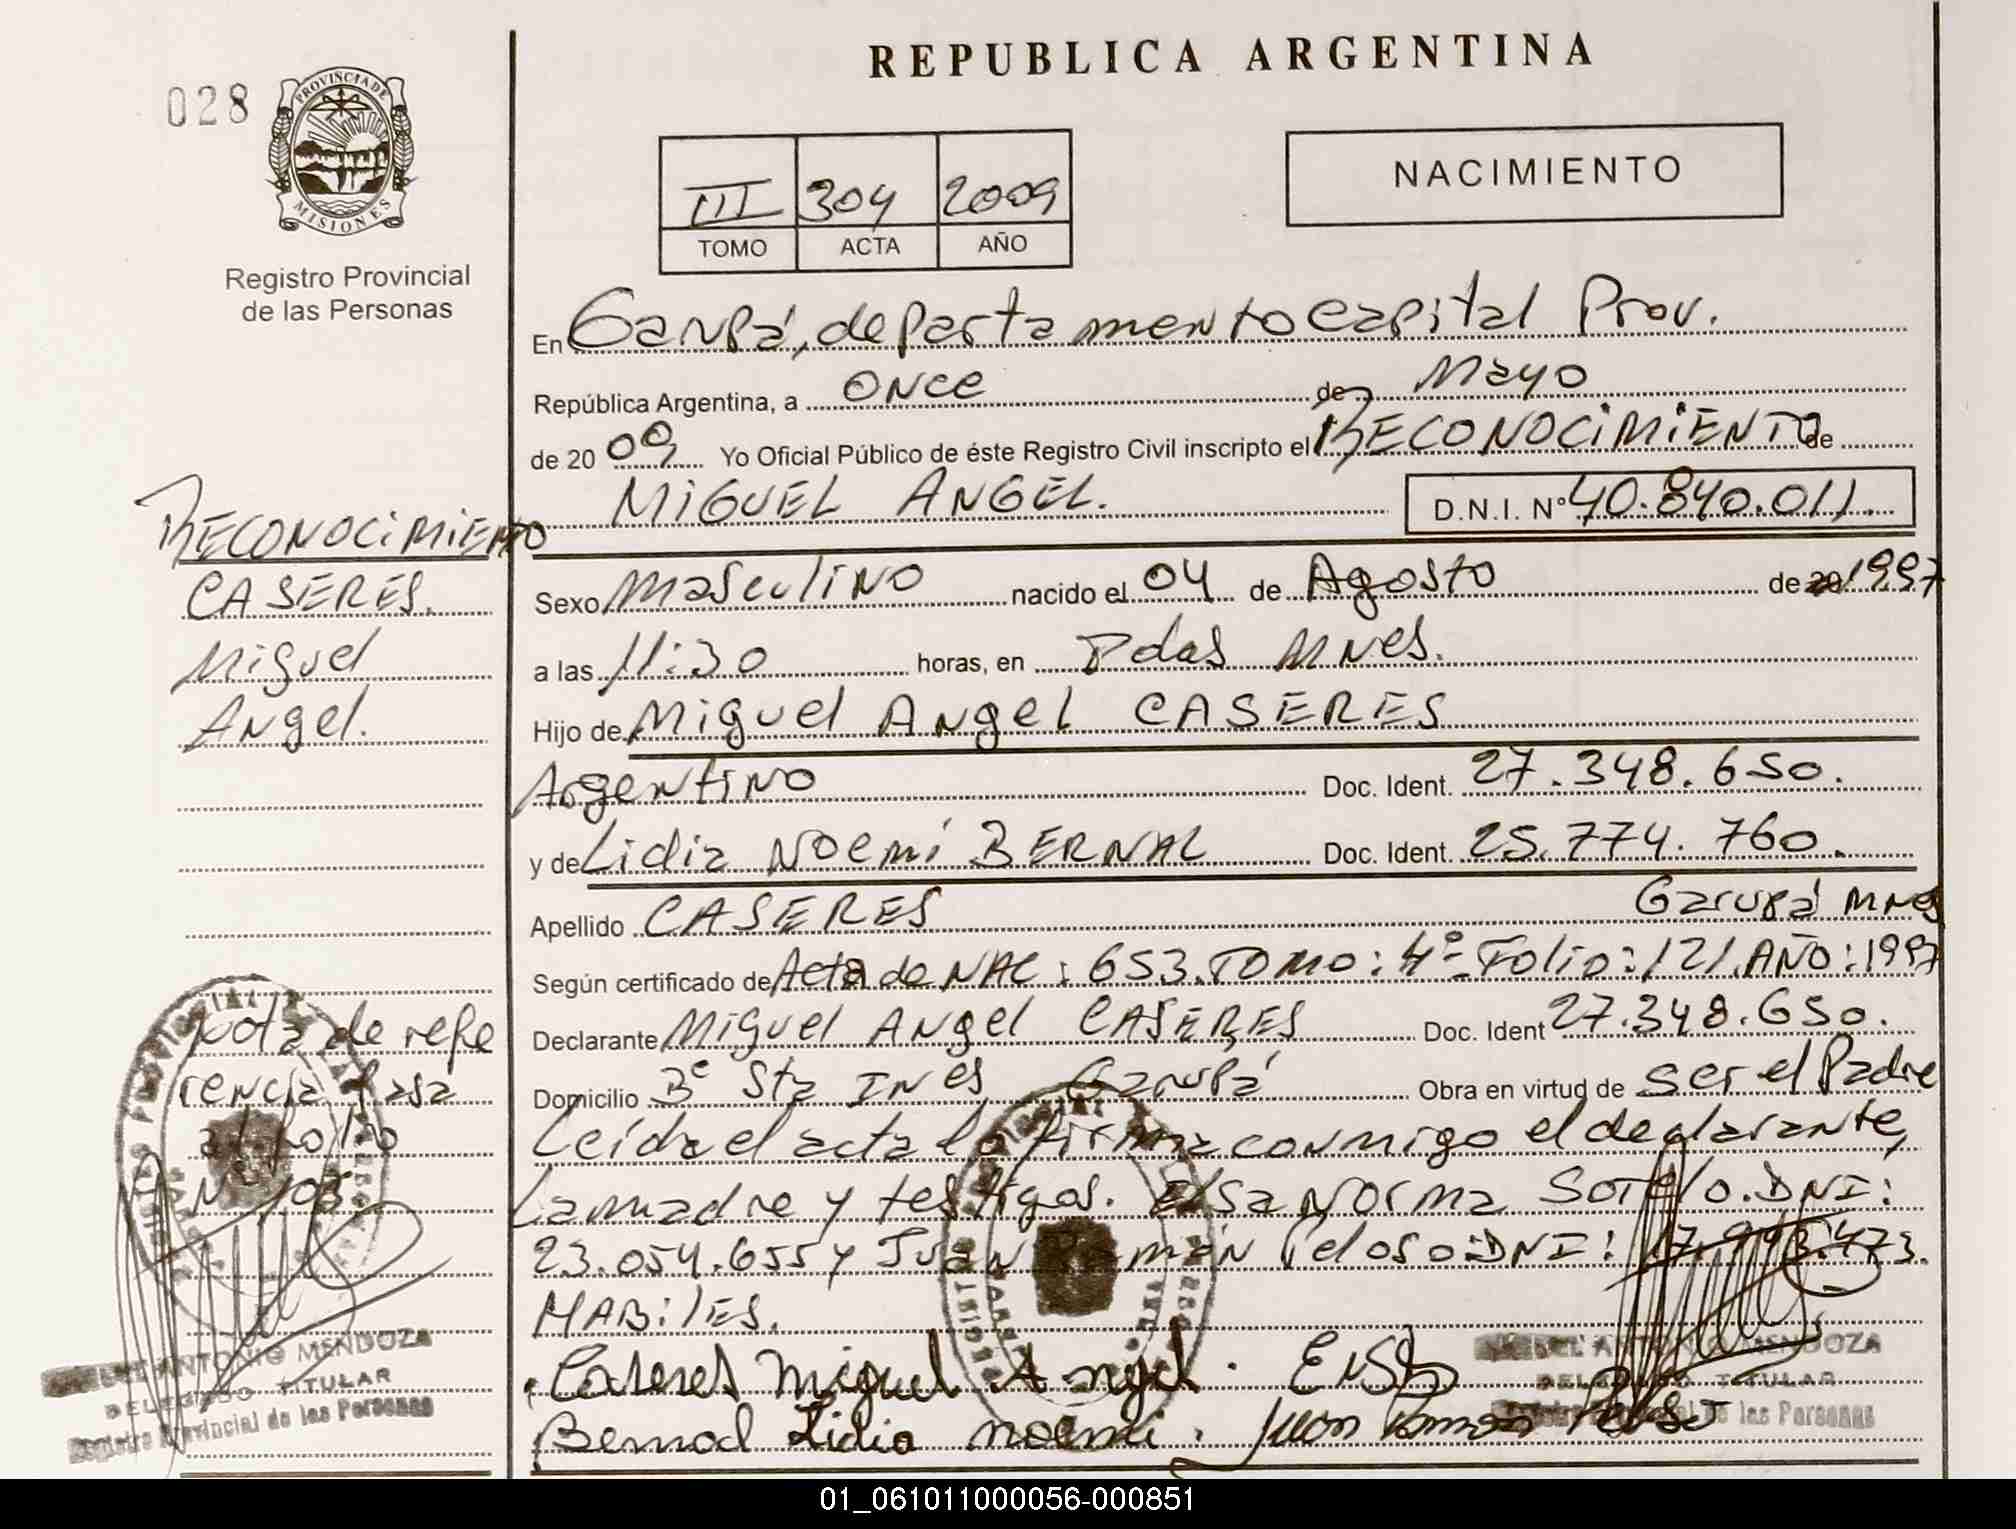 REPUBLICA ARGENTINA
028
PROVINCIA DE
MISIONES
Registro Provincial
de las Personas
III 304 2009
TOMO ACTA AÑO
NACIMIENTO
En Garupá, departamento capital Prov.
República Argentina, a once de Mayo
de 2009 Yo Oficial Público de éste Registro Civil inscripto el RECONOCIMIENTO de
MIGUEL ANGEL. D.N.I. Nº 40.840.011.
RECONOCIMIENTO
CASERES.
Miguel
Angel.
Sexo Masculino nacido el 04 de Agosto de 20 1997
a las 11:30 horas, en Pdas Mnes.
Hijo de Miguel Angel CASERES
Argentino Doc. Ident. 27.348.650.
y de Lidia Noemí BERNAL Doc. Ident. 25.774.760.
Apellido CASERES Garupá Mnes
Según certificado de Acta de NAC: 653. TOMO: 4º Folio: 121. AÑO: 1997
Declarante Miguel Angel CASERES Doc. Ident 27.348.650.
Domicilio Bº Sta Inés Garupá Obra en virtud de ser el Padre
Leída el acta la firma conmigo el declarante,
La madre y testigos. Elsa Norma Sotelo. DNI:
23.054.655 y Juan Ramón DNI:
HABILES.
Caseres Miguel Angel.
Bernal Lidia Noemi. Juan Ramon
Nota de refe
rencia Pasa
al Folio
Nº 103
ANTONIO MENDOZA
DELEGADO TITULAR
Registro Provincial de las Personas
ANTONIO MENDOZA
DELEGADO TITULAR
Registro Provincial de las Personas
01_061011000056-000851